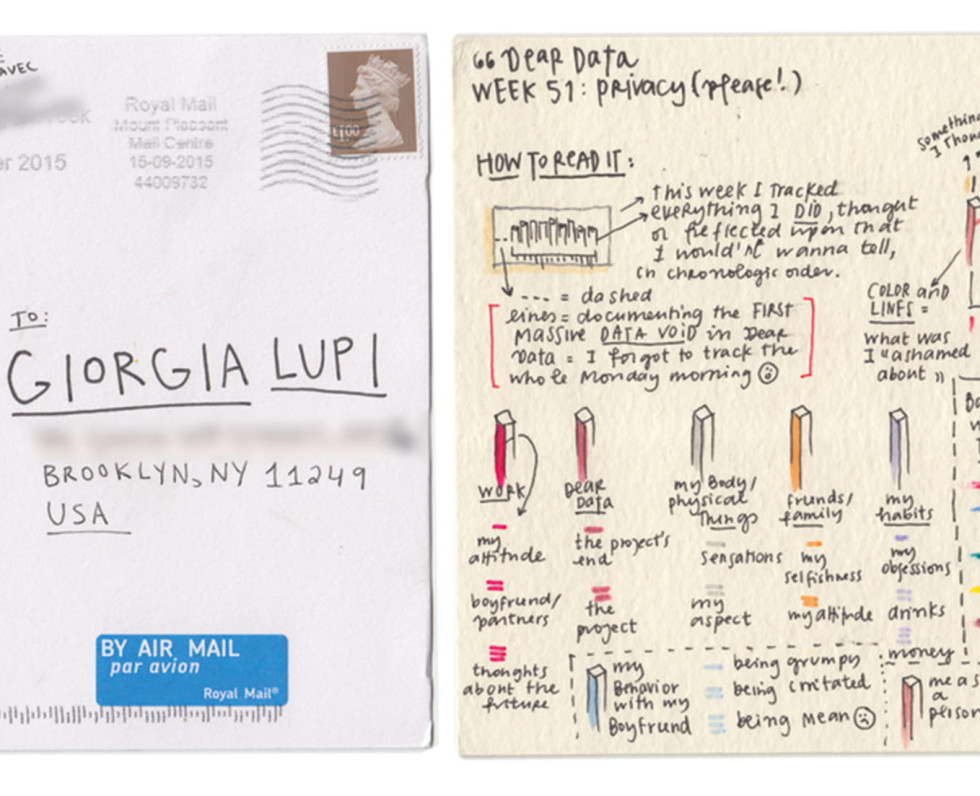 AVEC
2015
Royal Mail
Mount Pleasant
Mail Centre
15-09-2015
44009732
£1.00
TO:
GIORGIA LUPI
BROOKLYN, NY 11249
USA
BY AIR MAIL
par avion
Royal Mail®
Dear Data
WEEK 51: privacy (please!)
HOW TO READ IT:
This week I tracked
everything I DID, thought
or reflected upon that
I would'nt wanna tell,
in chronologic order.
---- = dashed
lines = documenting the FIRST
massive DATA VOID in Dear
Data = I forgot to track the
whole Monday morning
something
I thou
COLOR and
LINES =
what was
I "ashamed
about"
work
my
attitude
boyfriend/
partners
thoughts
about the
future
Dear
Data
the project's
end
the
project
my Body/
physical
Things
sensations
my
aspect
friends/
family
my
selfishness
my attitude
my
habits
my
obsessions
drinks
money
my
Behavior
with my
Boyfriend
being grumpy
being irritated
being mean
me as
a
person